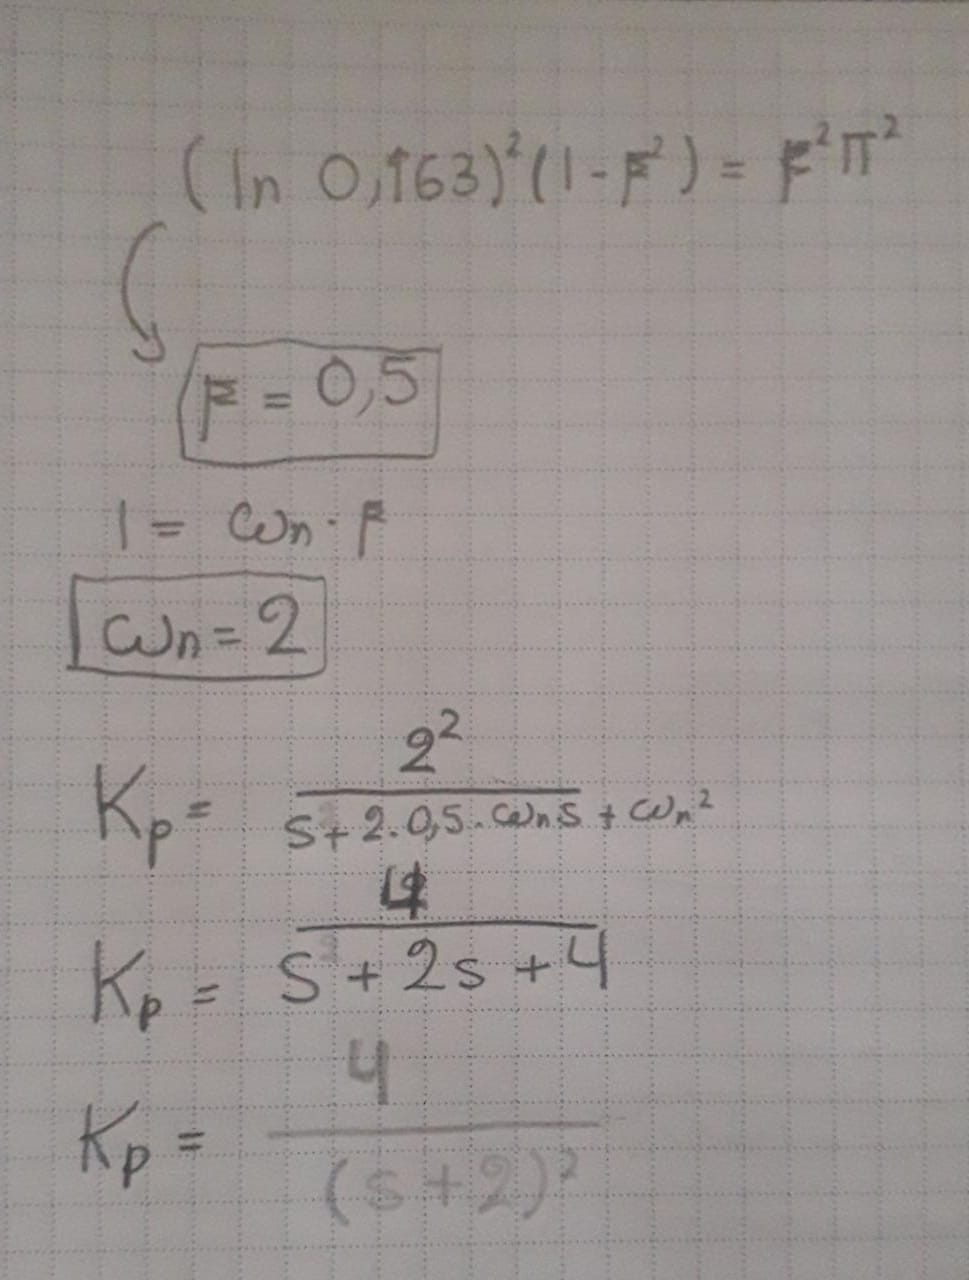 (ln 0,163)²(1-ξ²) = ξ²π²
ξ = 0,5
1 = ωn · ξ
ωn = 2
Kp = 2² / s + 2.0,5.ωns + ωn²
Kp = 4 / s + 2s + 4
Kp = 4 / (s+2)²